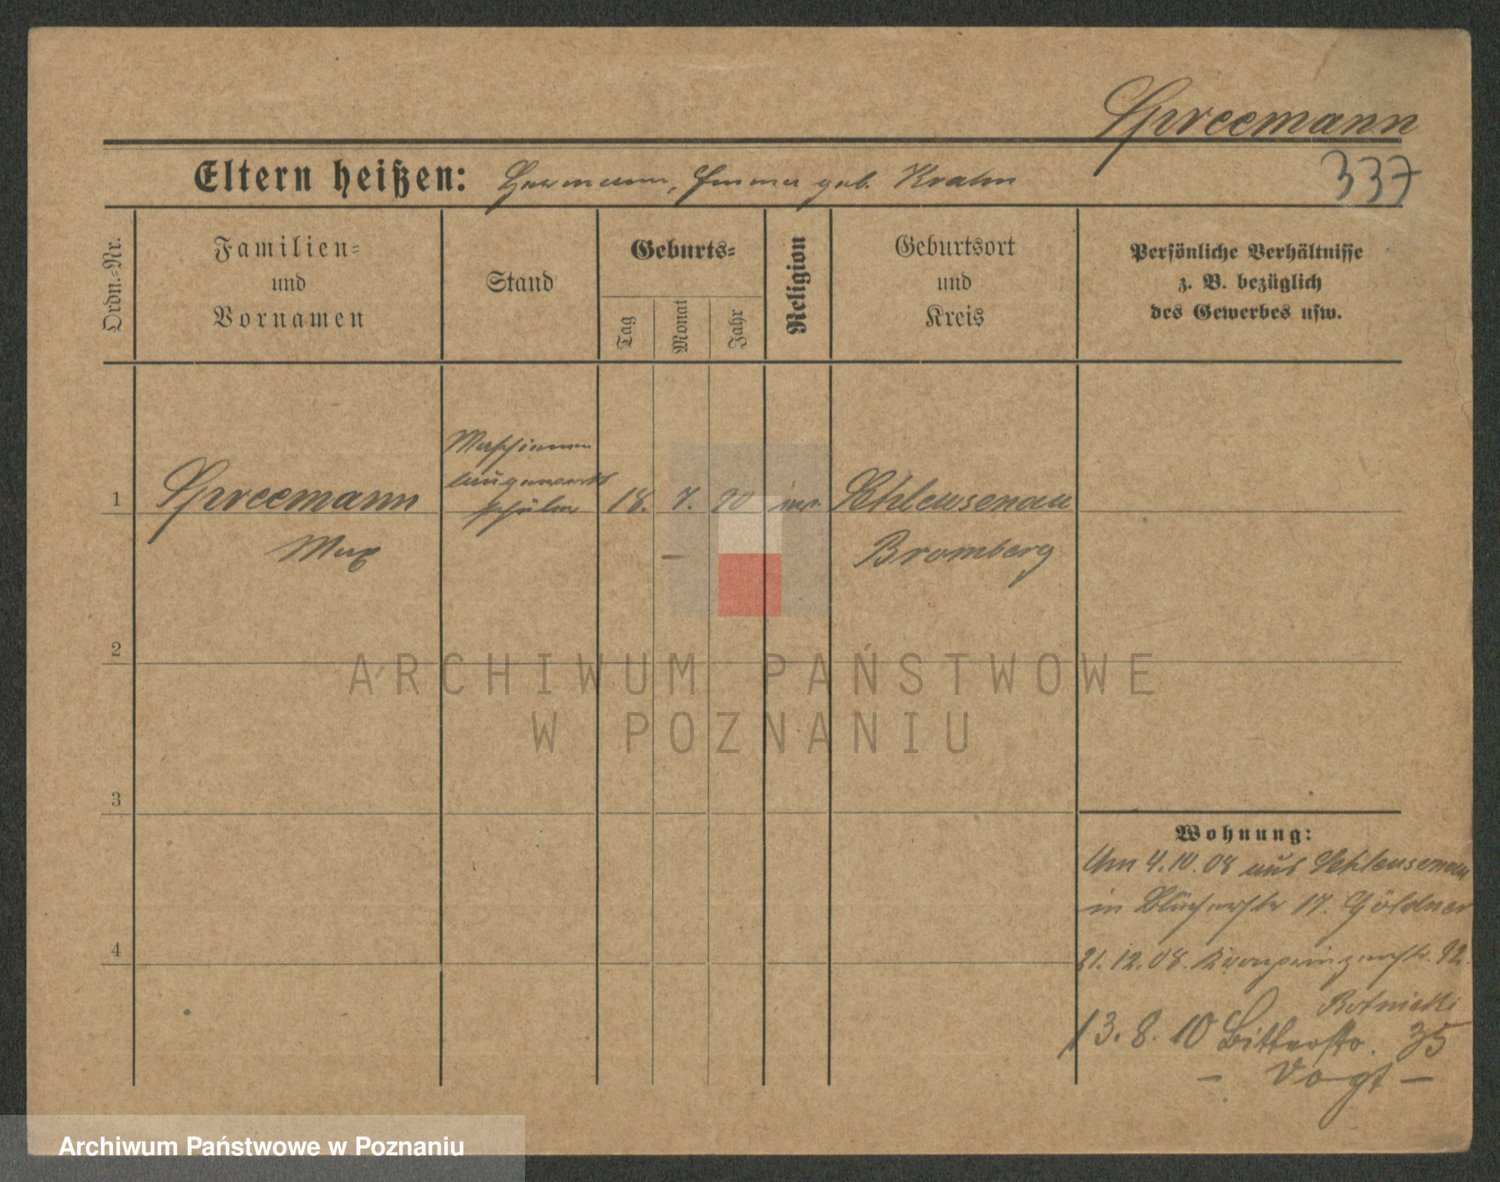 Spreemann
Eltern heißen: Hermann, Emma geb. Krahn
337
Ordn.-Nr.
Familien-
und
Vornamen
Stand
Geburts-
Tag
Monat
Jahr
Religion
Geburtsort
und
Kreis
Persönliche Verhältnisse
z. B. bezüglich
des Gewerbes usw.
1
Spreemann
Max
Maschinen
schüler
18. 7. 90
Schleusenau
Bromberg
2
3
4
Wohnung:
Am 4.10.08 aus Schleusenau
in Blücherstr 17. Göldner
21.12.08. Kronprinzenstr. 92.
13.8.10 Bitterstr. 35
– Vogt –
ARCHIWUM PAŃSTWOWE
W POZNANIU
Archiwum Państwowe w Poznaniu